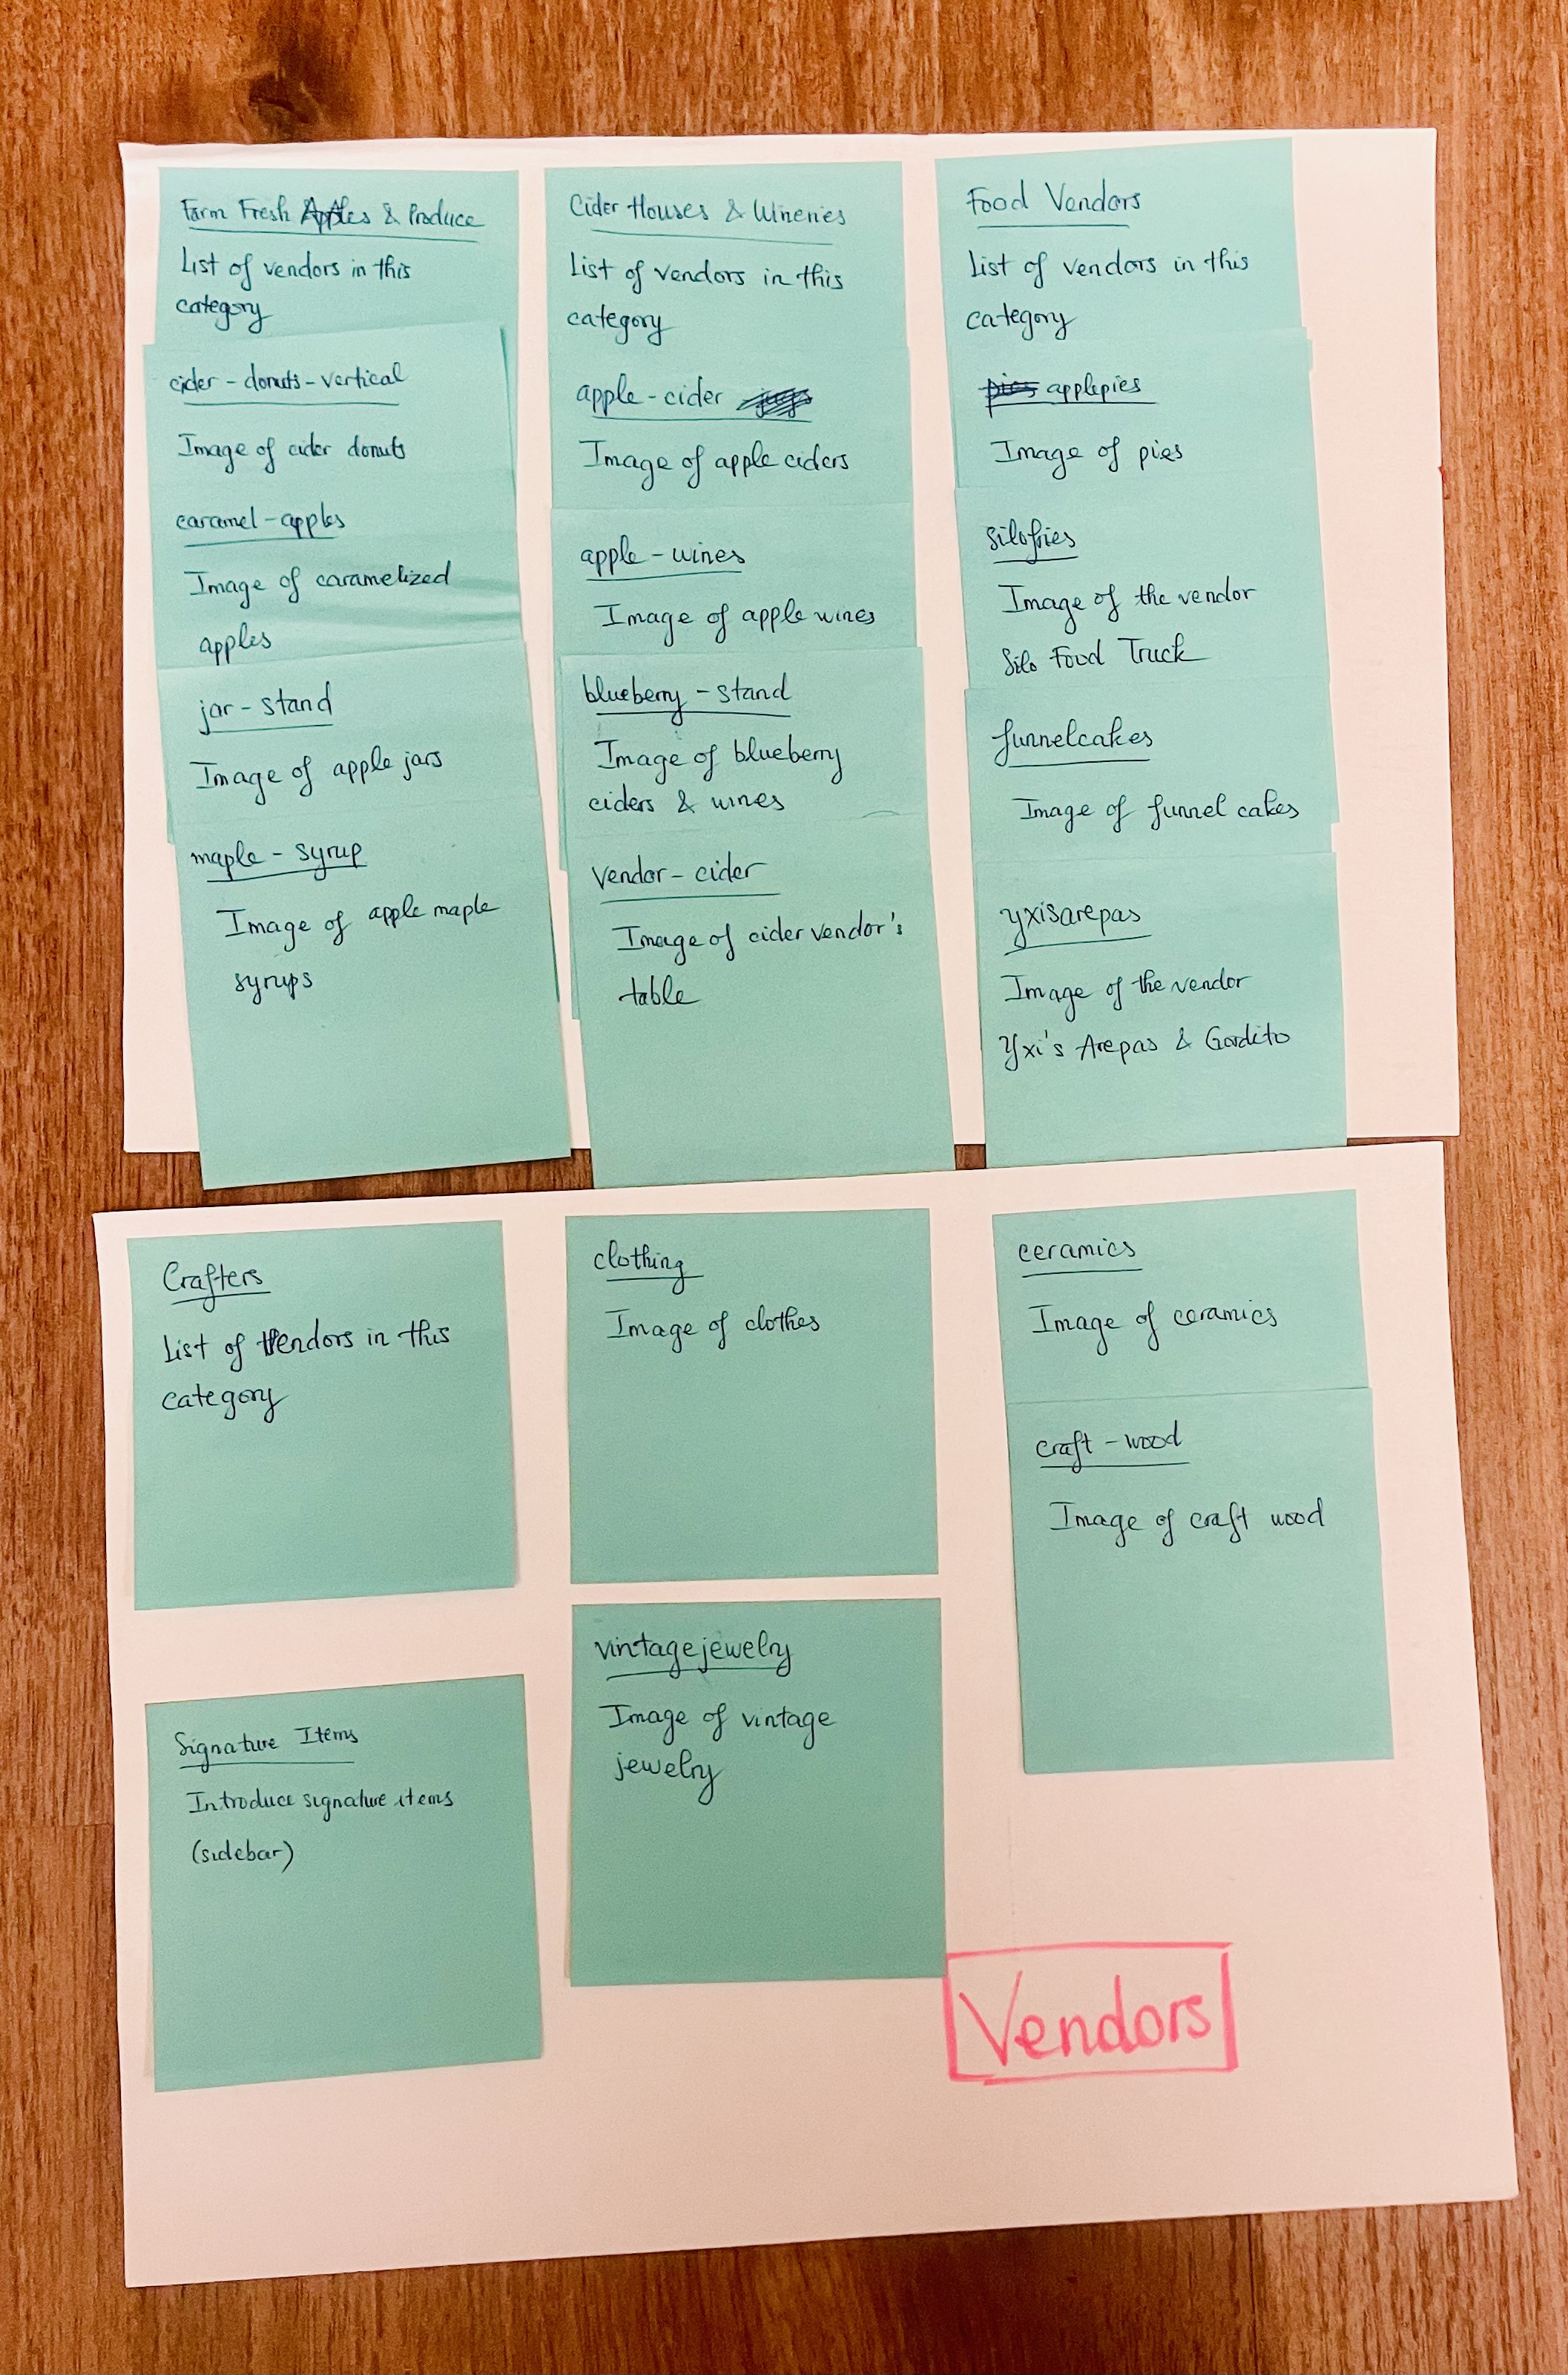 Farm Fresh Apples & Produce
List of vendors in this
category
cider - donuts - vertical
Image of cider donuts
caramel - apples
Image of caramelized
apples
jar - stand
Image of apple jars
maple - syrup
Image of apple maple
syrups
Cider Houses & Wineries
List of vendors in this
category
apple - cider
Image of apple ciders
apple - wines
Image of apple wines
blueberry - stand
Image of blueberry
ciders & wines
vendor - cider
Image of cider vendor's
table
Food Vendors
List of vendors in this
category
pies applepies
Image of pies
silofries
Image of the vendor
Silo Food Truck
funnelcakes
Image of funnel cakes
yxisarepas
Image of the vendor
Yxi's Arepas & Gordito
Crafters
List of Vendors in this
category
Signature Items
Introduce signature items
(sidebar)
clothing
Image of clothes
vintagejewelry
Image of vintage
jewelry
ceramics
Image of ceramics
craft - wood
Image of craft wood
Vendors